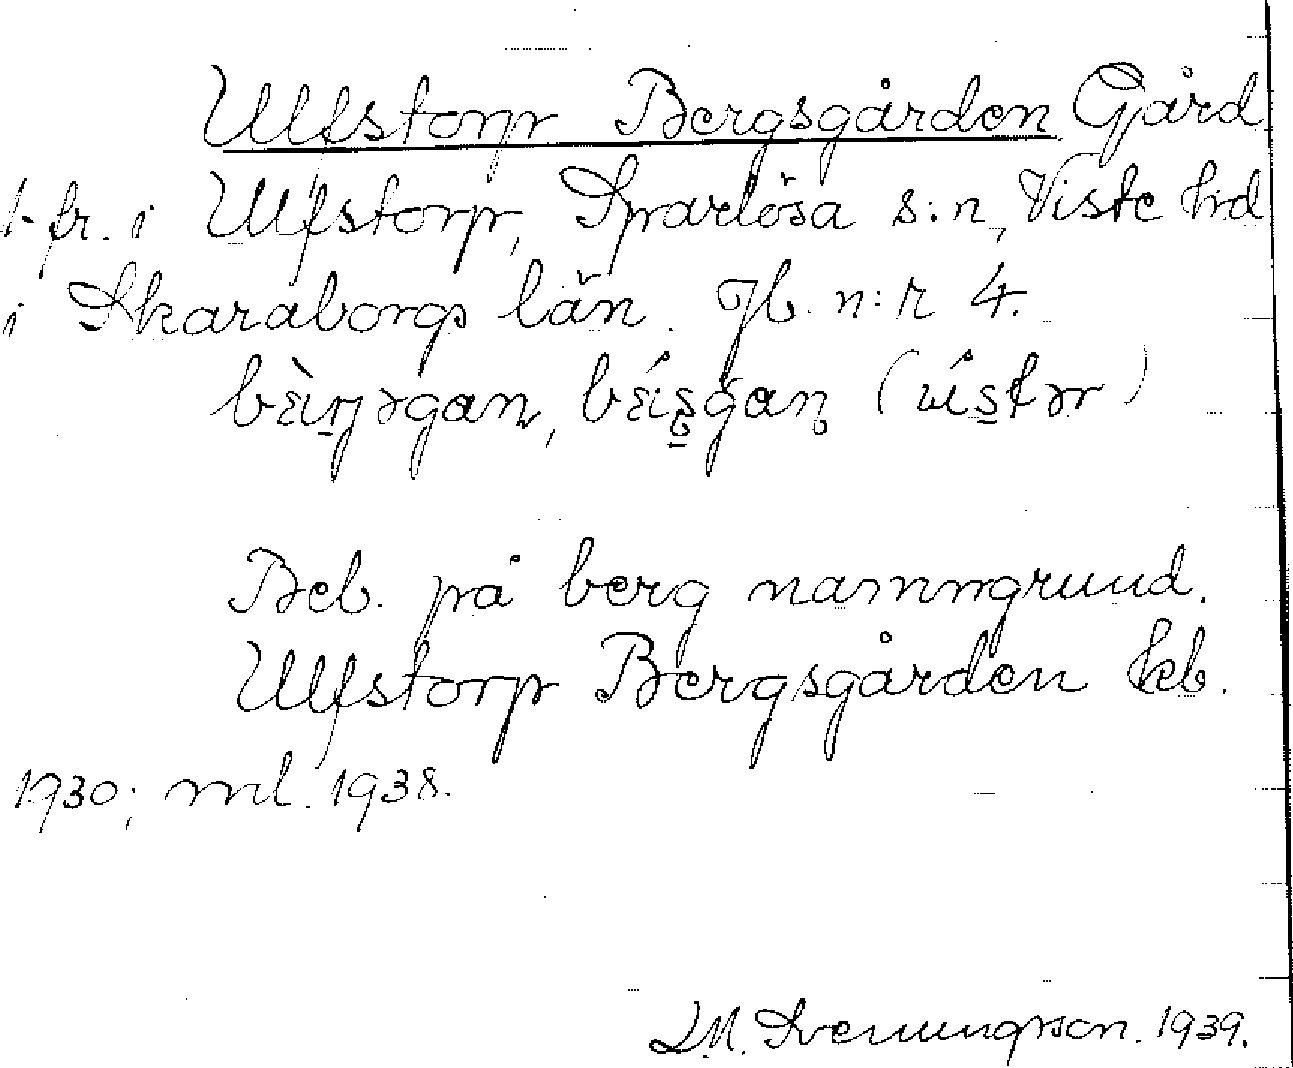 Ulfstorp Bergsgården Gård
1 fr. i Ulfstorp, Sparlösa s:n, Viste hrd
i Skaraborgs län. Jb. n:r 4.
Beb. på berg namngrund.
Ulfstorp Bergsgården kb.
1930; ml. 1938.
L.M. Svenungsson. 1939.